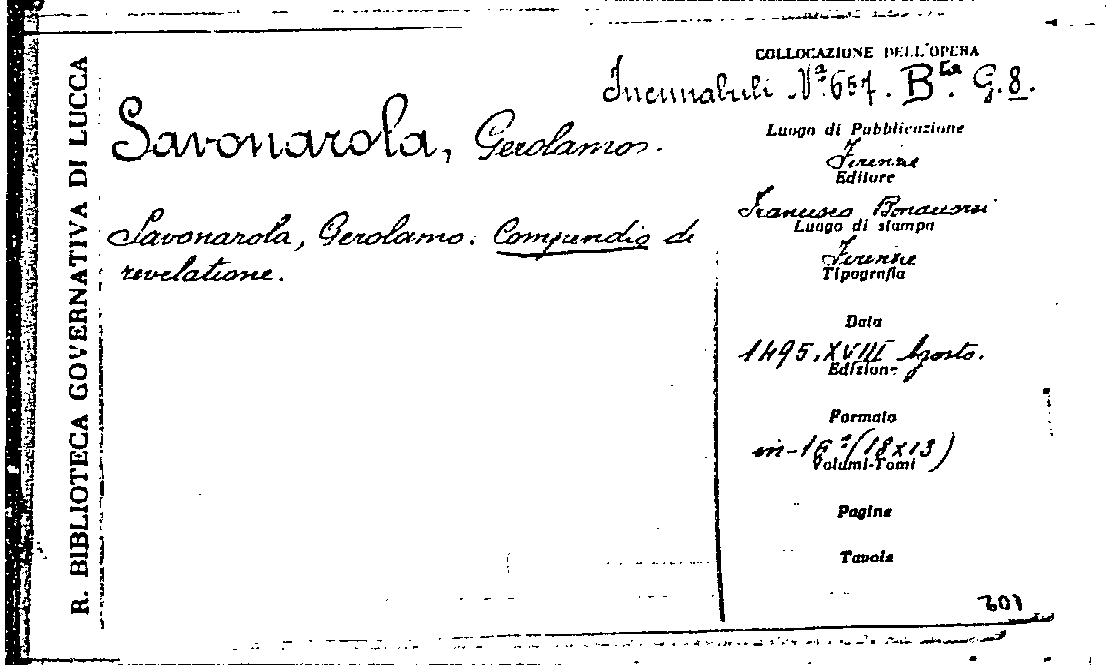 R. BIBLIOTECA GOVERNATIVA DI LUCCA
COLLOCAZIONE DELL'OPERA
Incunabuli N.º 657. B.ta G.8.
Savonarola, Gerolamo.
Savonarola, Gerolamo. Compendio di
revelatione.
Luogo di Pubblicazione
Firenze
Editore
Francesco Bonaccorsi
Luogo di stampa
Firenze
Tipografia
Data
1495. XVIII Agosto.
Edizione
Formato
in-16º (18x13)
Volumi-Tomi
Pagine
Tavole